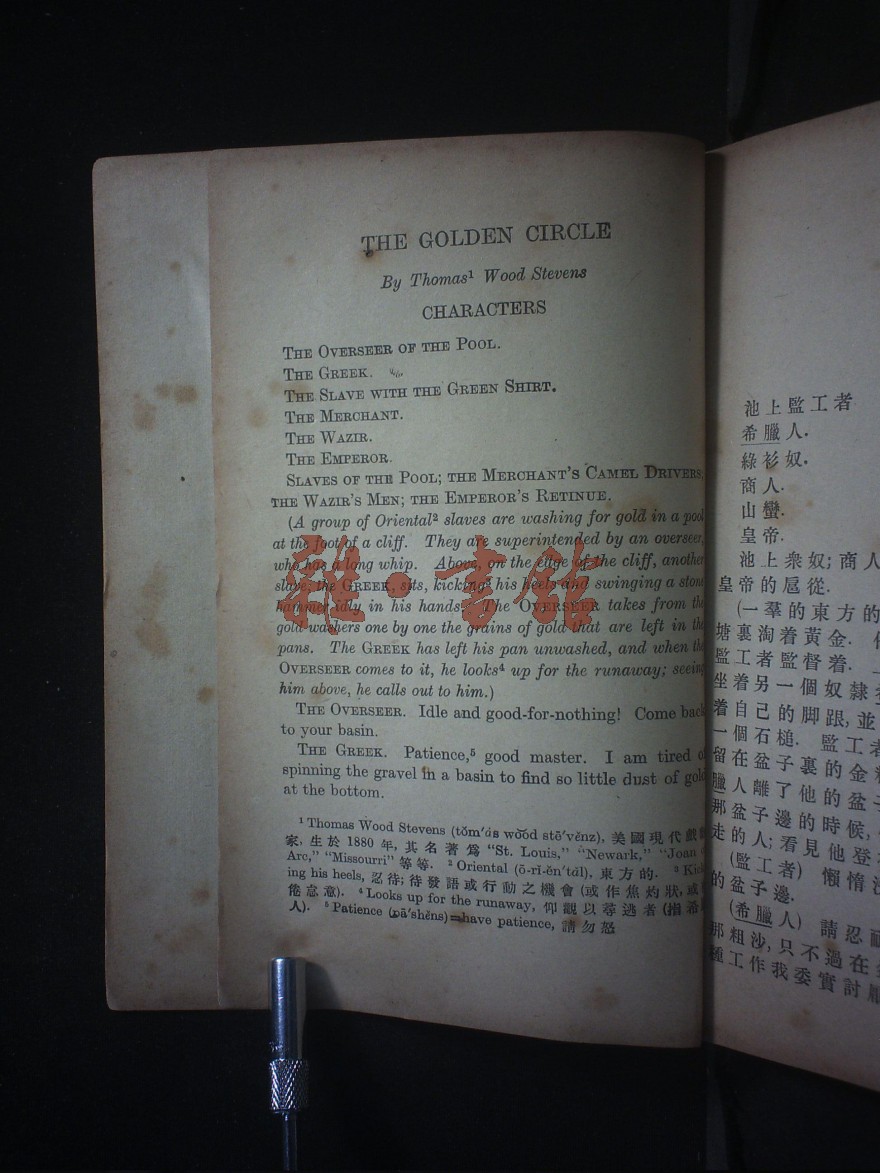 THE GOLDEN CIRCLE
By Thomas¹ Wood Stevens
CHARACTERS
THE OVERSEER OF THE POOL.
THE GREEK.
THE SLAVE WITH THE GREEN SHIRT.
THE MERCHANT.
THE WAZIR.
THE EMPEROR.
SLAVES OF THE POOL; THE MERCHANT'S CAMEL DRIVERS;
THE WAZIR'S MEN; THE EMPEROR'S RETINUE.
(A group of Oriental² slaves are washing for gold in a pool
at the foot of a cliff. They are superintended by an overseer,
who has a long whip. Above, on the edge of the cliff, another
slave; the GREEK, sits, kicking³ his heels and swinging a stone
hammer idly in his hands. The OVERSEER takes from the
gold-washers one by one the grains of gold that are left in the
pans. The GREEK has left his pan unwashed, and when the
OVERSEER comes to it, he looks⁴ up for the runaway; seeing
him above, he calls out to him.)
THE OVERSEER. Idle and good-for-nothing! Come back
to your basin.
THE GREEK. Patience,⁵ good master. I am tired of
spinning the gravel in a basin to find so little dust of gold
at the bottom.
¹ Thomas Wood Stevens (tŏm′ɑs wŏŏd stē′vĕnz), 美國現代戲
家, 生於 1880 年, 其名著爲 “St. Louis,” “Newark,” “Joan
Arc,” “Missourri” 等等. ² Oriental (ō-rĭ-ĕn′tɑl), 東方的. ³ Kick-
ing his heels, 忍待; 待發語或行動之機會 (或作焦灼狀, 或
倦怠意). ⁴ Looks up for the runaway, 仰觀以尋逃者 (指希
人). ⁵ Patience (pā′shĕns)=have patience, 請勿怒
池上監工者
希臘人.
綠衫奴.
商人.
山蠻.
皇帝.
池上衆奴; 商人
皇帝的扈從.
(一羣的東方的
塘裏淘着黃金.
監工者監督着.
坐着另一個奴隸
着自己的脚跟, 並
一個石槌. 監工者
留在盆子裏的金
臘人離了他的盆子
那盆子邊的時候,
走的人; 看見他登
(監工者) 懶惰
的盆子邊.
(希臘人) 請忍耐
那粗沙, 只不過在
種工作我委實討